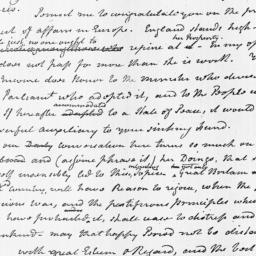 Permit me to congratulate you on the pr
ct of affairs in Europe. England stands high
to just, no one ought to repine at it - her Property. In my op
does not pass for more than she is worth.
Income does Honor to the Minister who devis
Parliament who adopted it, and to the People w
If hereafter accommodated to a State of Peace, it would
erful auxiliary to your sinking Fund.
our conversation here turns so much on
and (as the phrase is) her Doings, that
insensibly led to this Topic. great Britain
Country, will have Reason to rejoice, when the
ious war, and the pestiferous principles whi
have produced it, shall cease to distress and
ankind - may that happy Period not be distan
with great Esteem & Regard, and the best